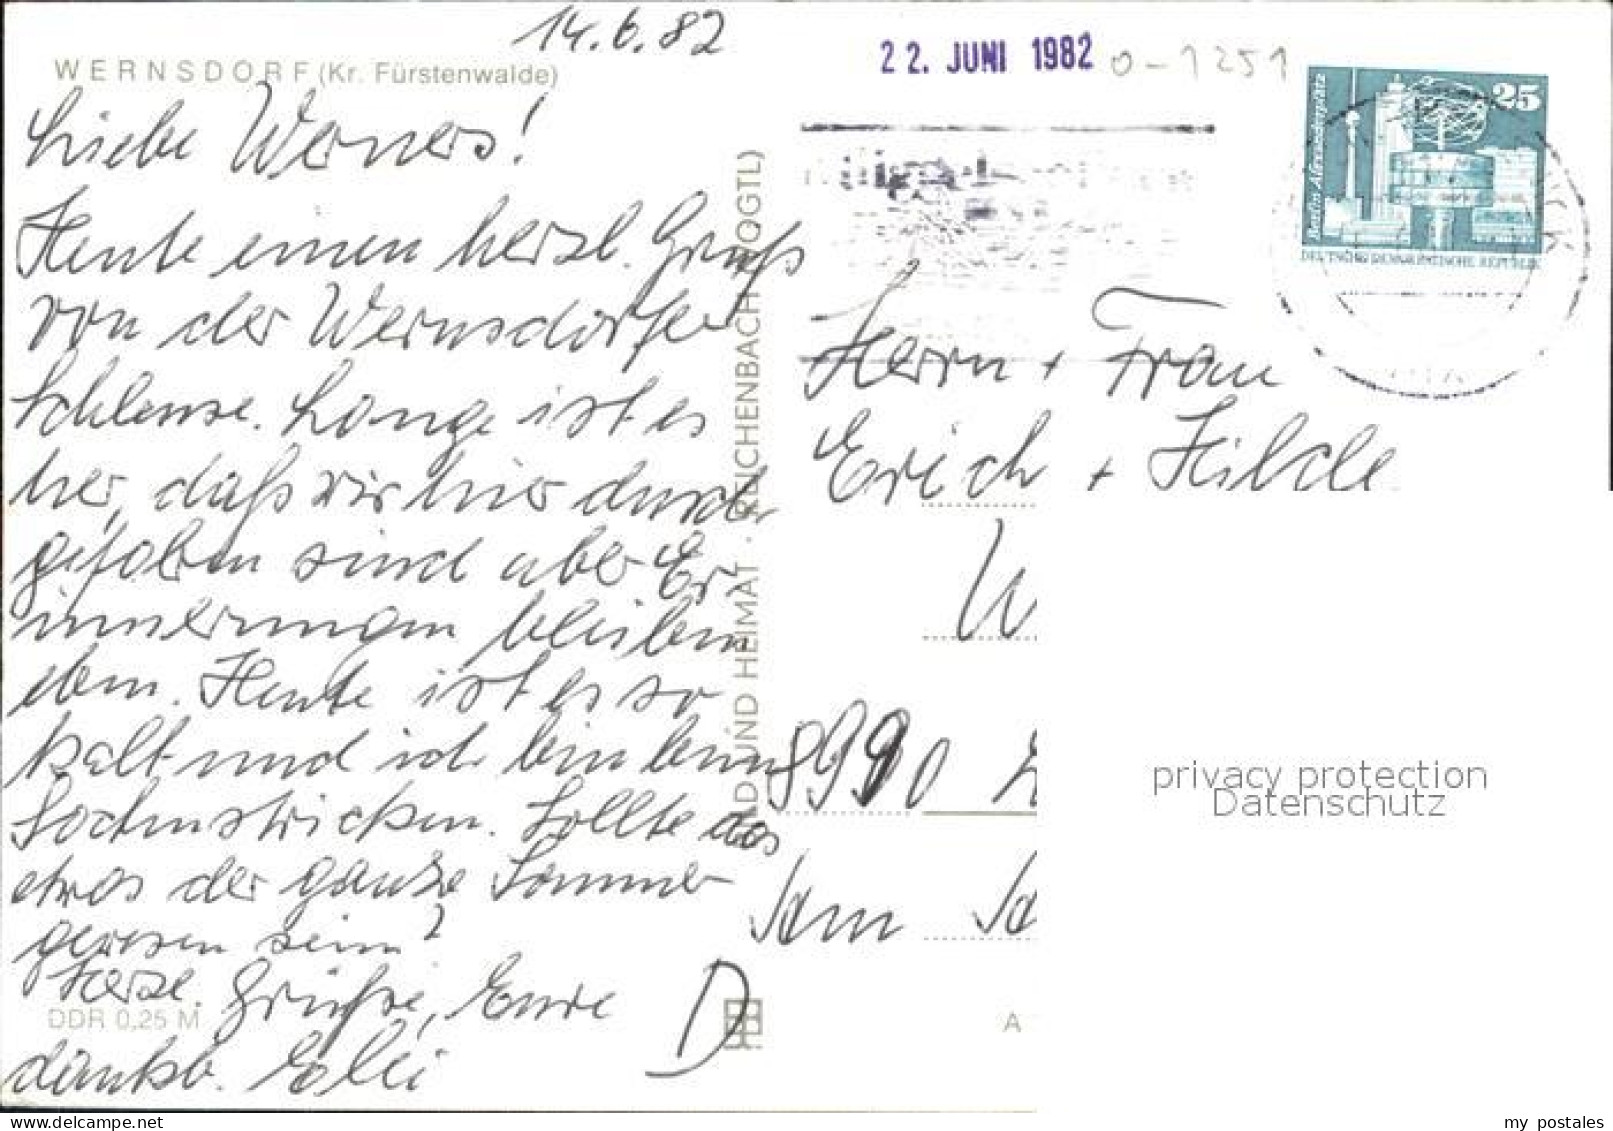 14.6.82
WERNSDORF (Kr. Fürstenwalde)
22. JUNI 1982
0-1251
Berlin, Alexanderplatz
25
DEUTSCHE DEMOKRATISCHE REPUBLIK
Liebe Werners!
Heute einen herzl. Gruß
von der Wernsdorfer
Schleuse. Lange ist es
her, daß wir hier durch
gefahren sind aber Er-
innerungen bleiben
eben. Heute ist es so
kalt und ich bin beim
Sockenstricken. Sollte das
etwas der ganze Sommer
gewesen sein?
Herzl. Grüße, Eure
dankb. Elli
DDR 0,25 M
UND HEIMAT · REICHENBACH (VOGTL)
Herrn + Frau
Erich + Hilde
W
8990
Am
D
A
privacy protection
Datenschutz
www.delcampe.net
my_postales